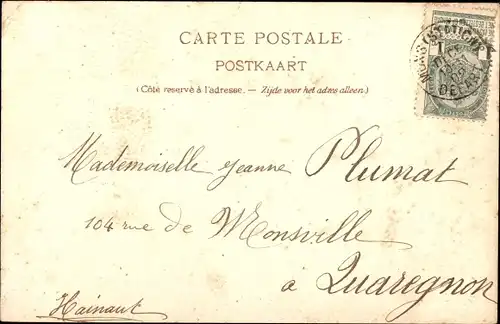 CARTE POSTALE
POSTKAART
(Côté reservé à l'adresse. — Zijde voor het adres alleen.)
MONS (STATION)
DEPART
Mademoiselle Jeanne Plumat
104 rue de Monsville
à Quaregnon
Hainaut